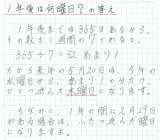 1年後は何曜日？の答え
1年後までは365日あるから、
その数を1週間の7でわると、
365÷7=52あまり1
だから来年の5月20日は、今年の
水曜日から あまり1 の分だけ
ずらした木曜日になります。
ちなみに、1年の間に2月29日
がある場合は、ふたつ進んだ曜日
になります。